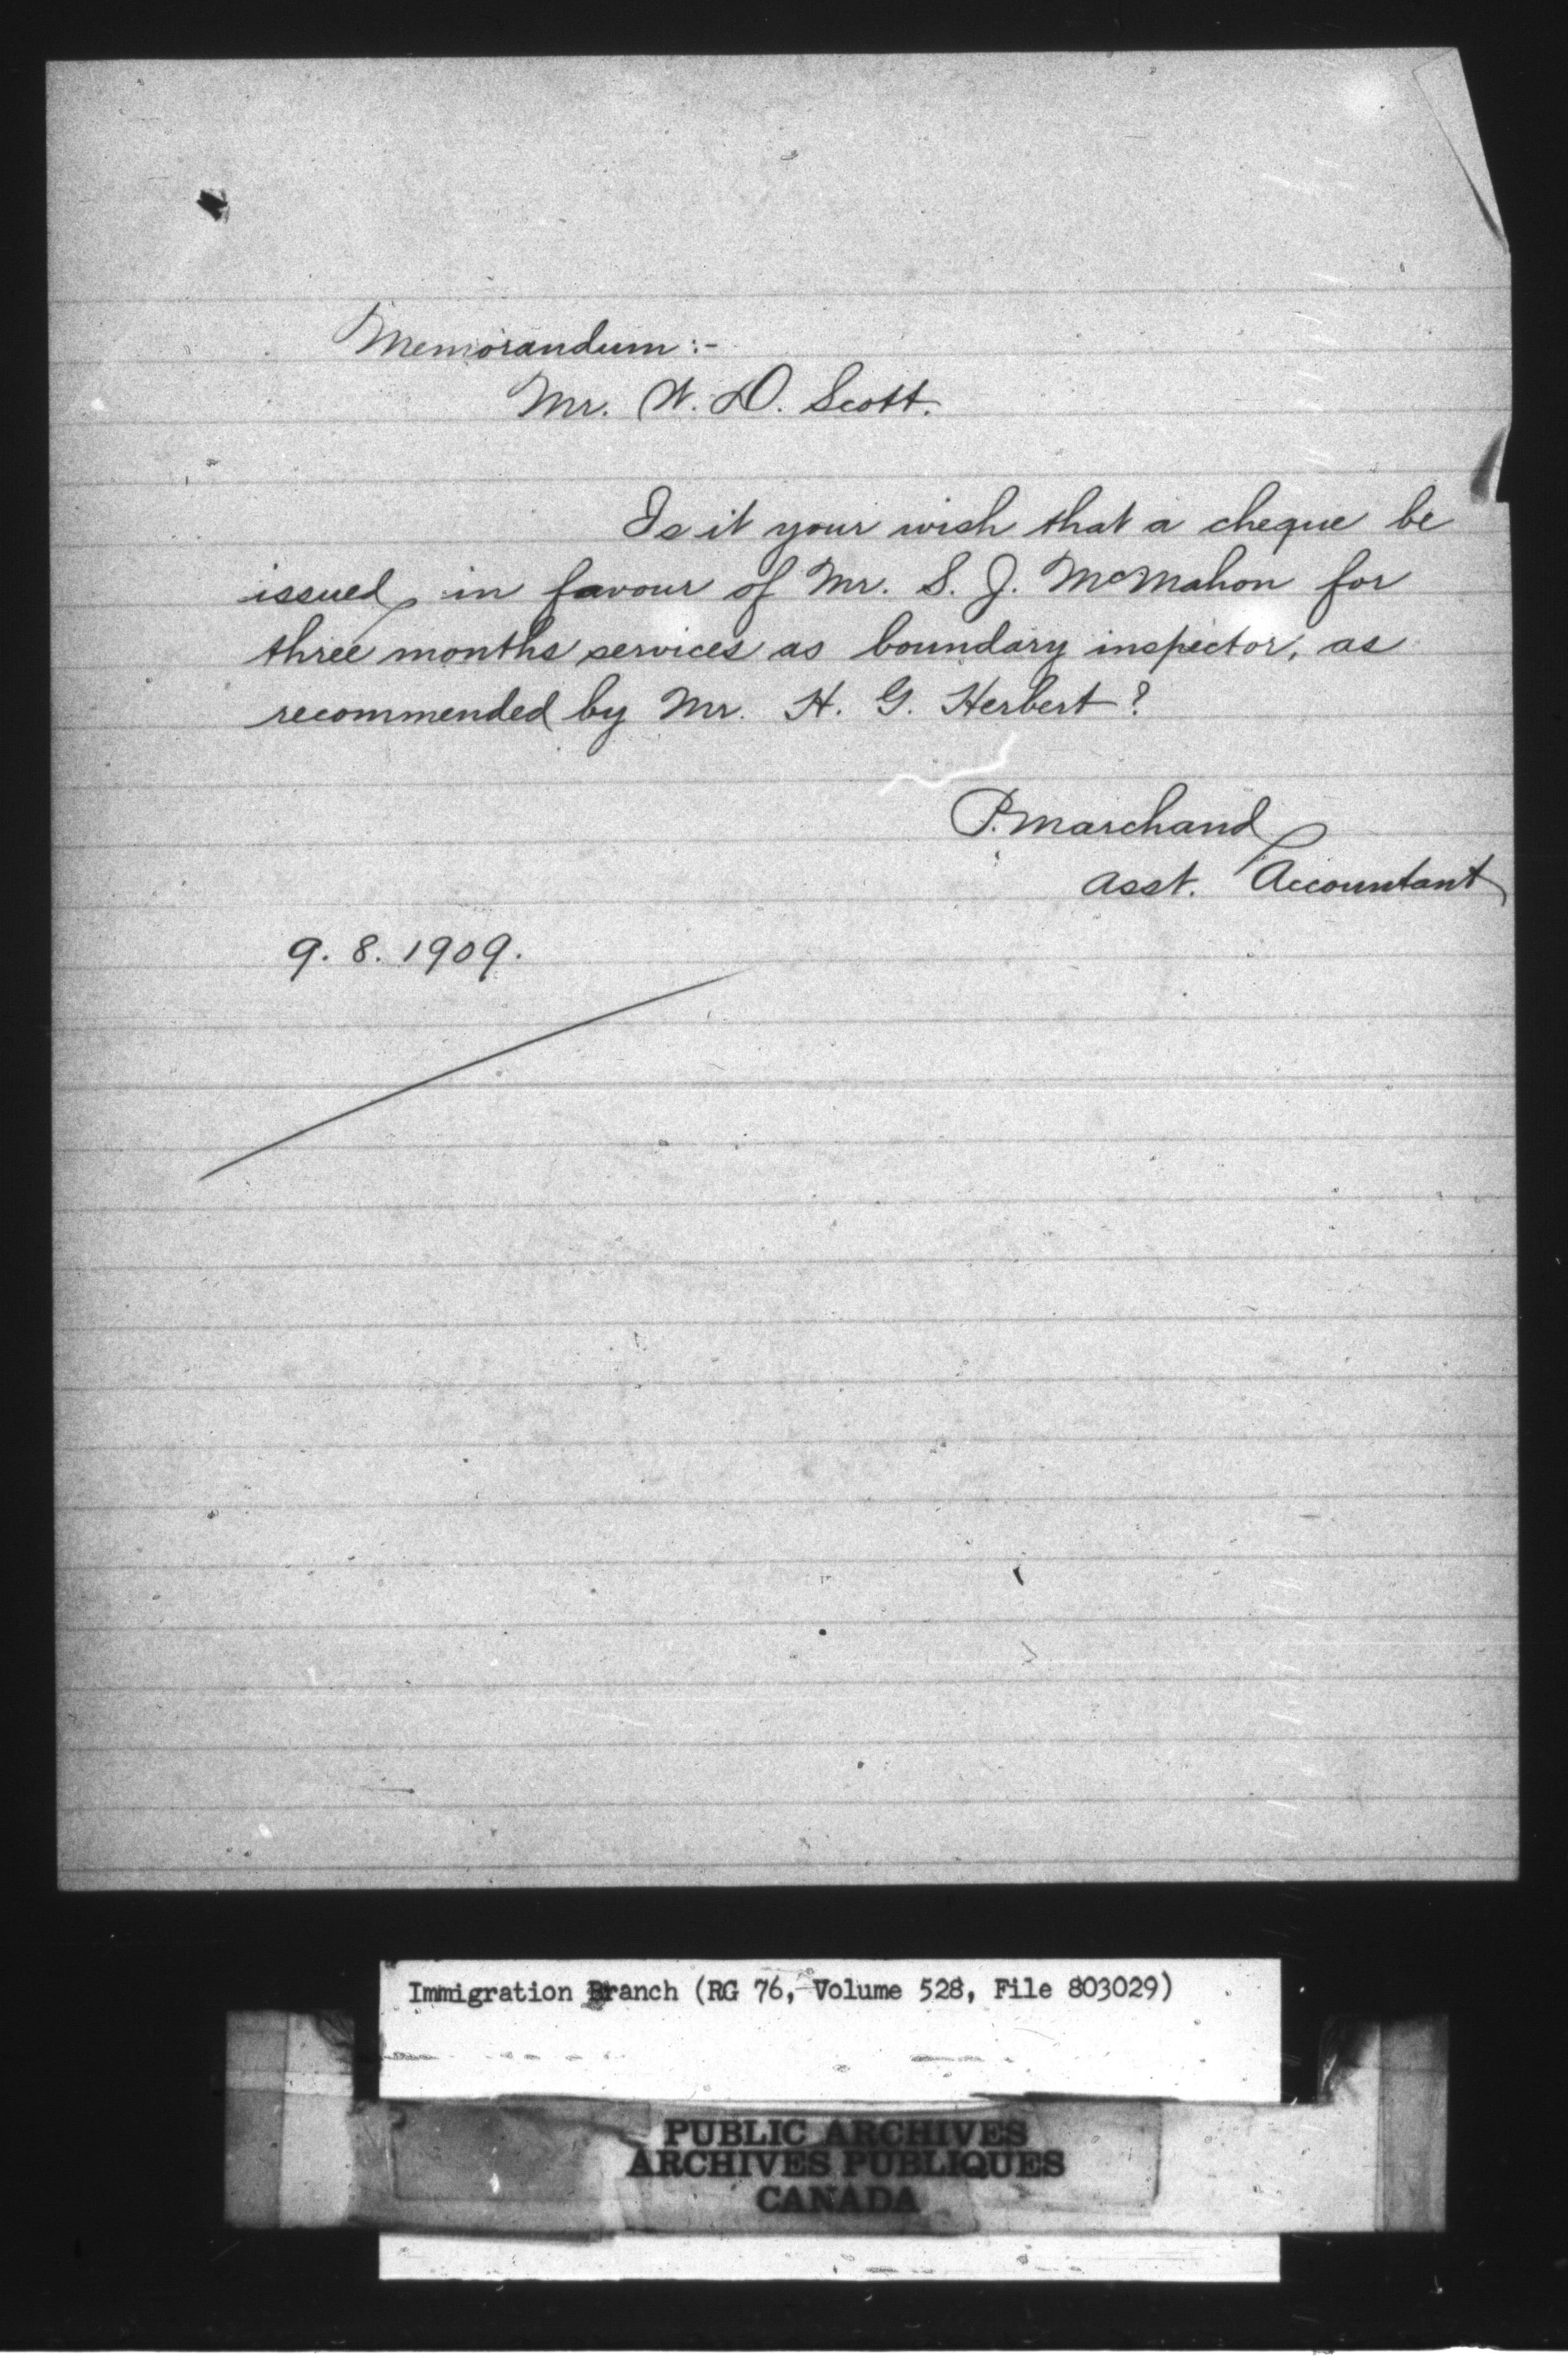 Memorandum:-
Mr. W. D. Scott.
Is it your wish that a cheque be
issued, in favour of Mr. S. J. McMahon for
three months services as boundary inspector, as
recommended by Mr. H. G. Herbert?
P. Marchand
Asst. Accountant
9. 8. 1909.
Immigration Branch (RG 76, Volume 528, File 803029)
PUBLIC ARCHIVES
ARCHIVES PUBLIQUES
CANADA